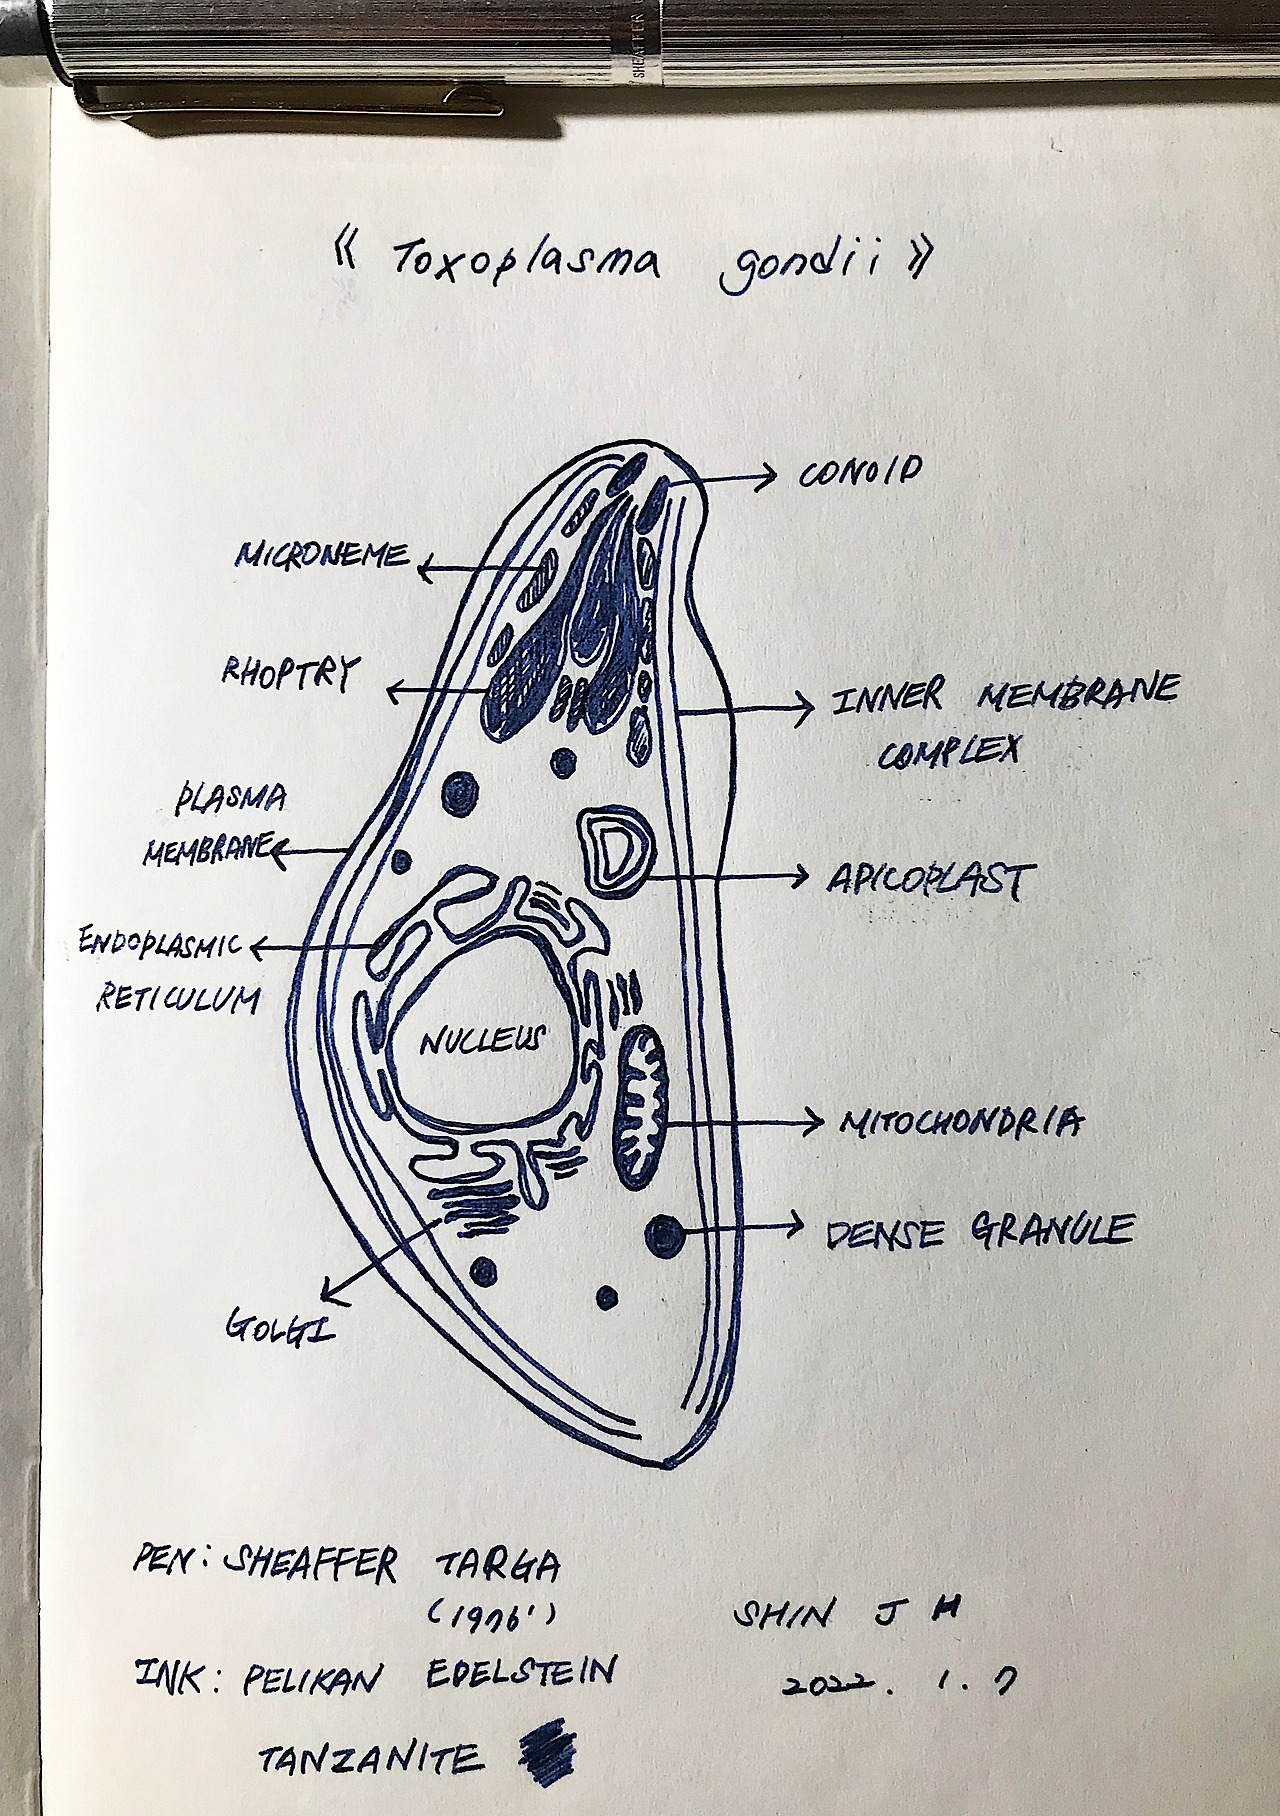 SHEAFFER
《 Toxoplasma gondii 》
CONOID
MICRONEME
RHOPTRY
INNER MEMBRANE
COMPLEX
PLASMA
MEMBRANE
APICOPLAST
ENDOPLASMIC
RETICULUM
NUCLEUS
MITOCHONDRIA
DENSE GRANULE
GOLGI
PEN: SHEAFFER TARGA
(1976')
INK: PELIKAN EDELSTEIN
TANZANITE
SHIN J H
2022. 1. 7